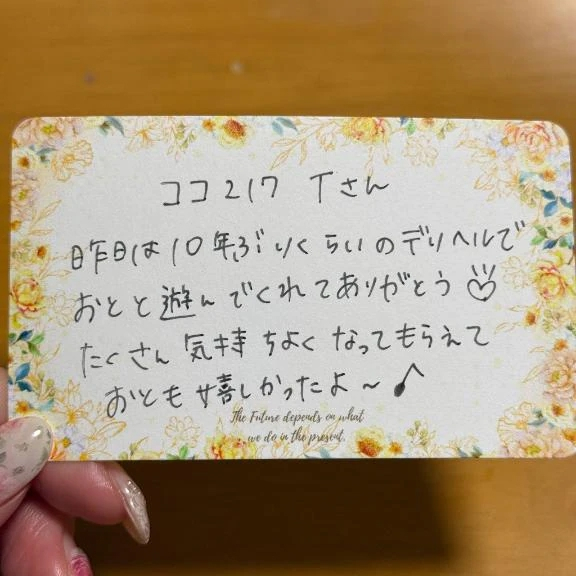 ココ217 Tさん
昨日は10年ぶりくらいのデリヘルで
おとと遊んでくれてありがとう♡
たくさん気持ちよくなってもらえて
おとも嬉しかったよ〜♪
The Future depends on what
we do in the present.